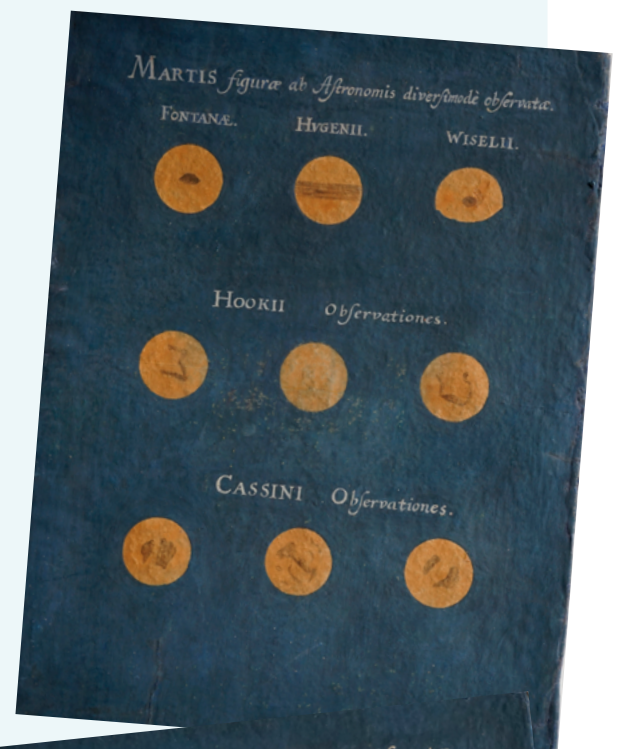 MARTIS figuræ ab Aſtronomis diverſimodè obſervatæ.
FONTANÆ. HVGENII. WISELII.
HOOKII Obſervationes.
CASSINI Obſervationes.